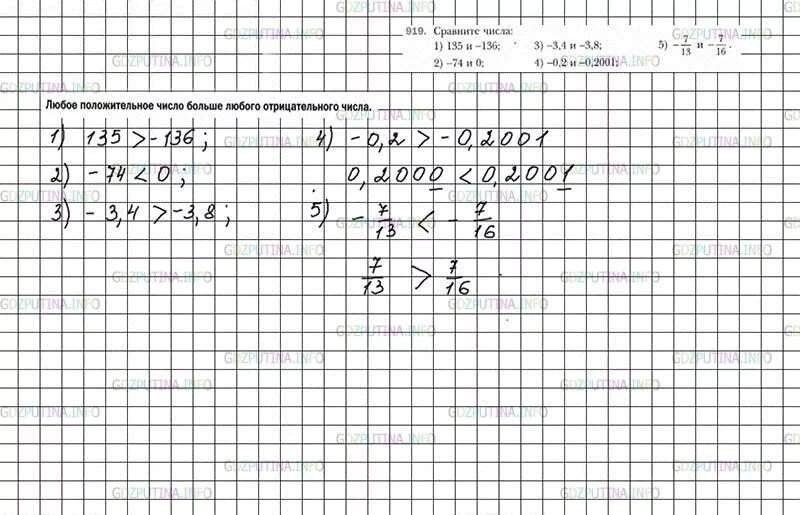 919. Сравните числа:
1) 135 и –136; 3) –3,4 и –3,8; 5) –7/13 и –7/16.
2) –74 и 0; 4) –0,2 и –0,2001;
Любое положительное число больше любого отрицательного числа.
1) 135 > -136 ; 4) -0,2 > -0,2001
2) - 74 < 0 ; 0,2000 < 0,2001
3) - 3,4 > -3,8 ; 5) - 7/13 < - 7/16
7/13 > 7/16
GDZPUTINA.INFO